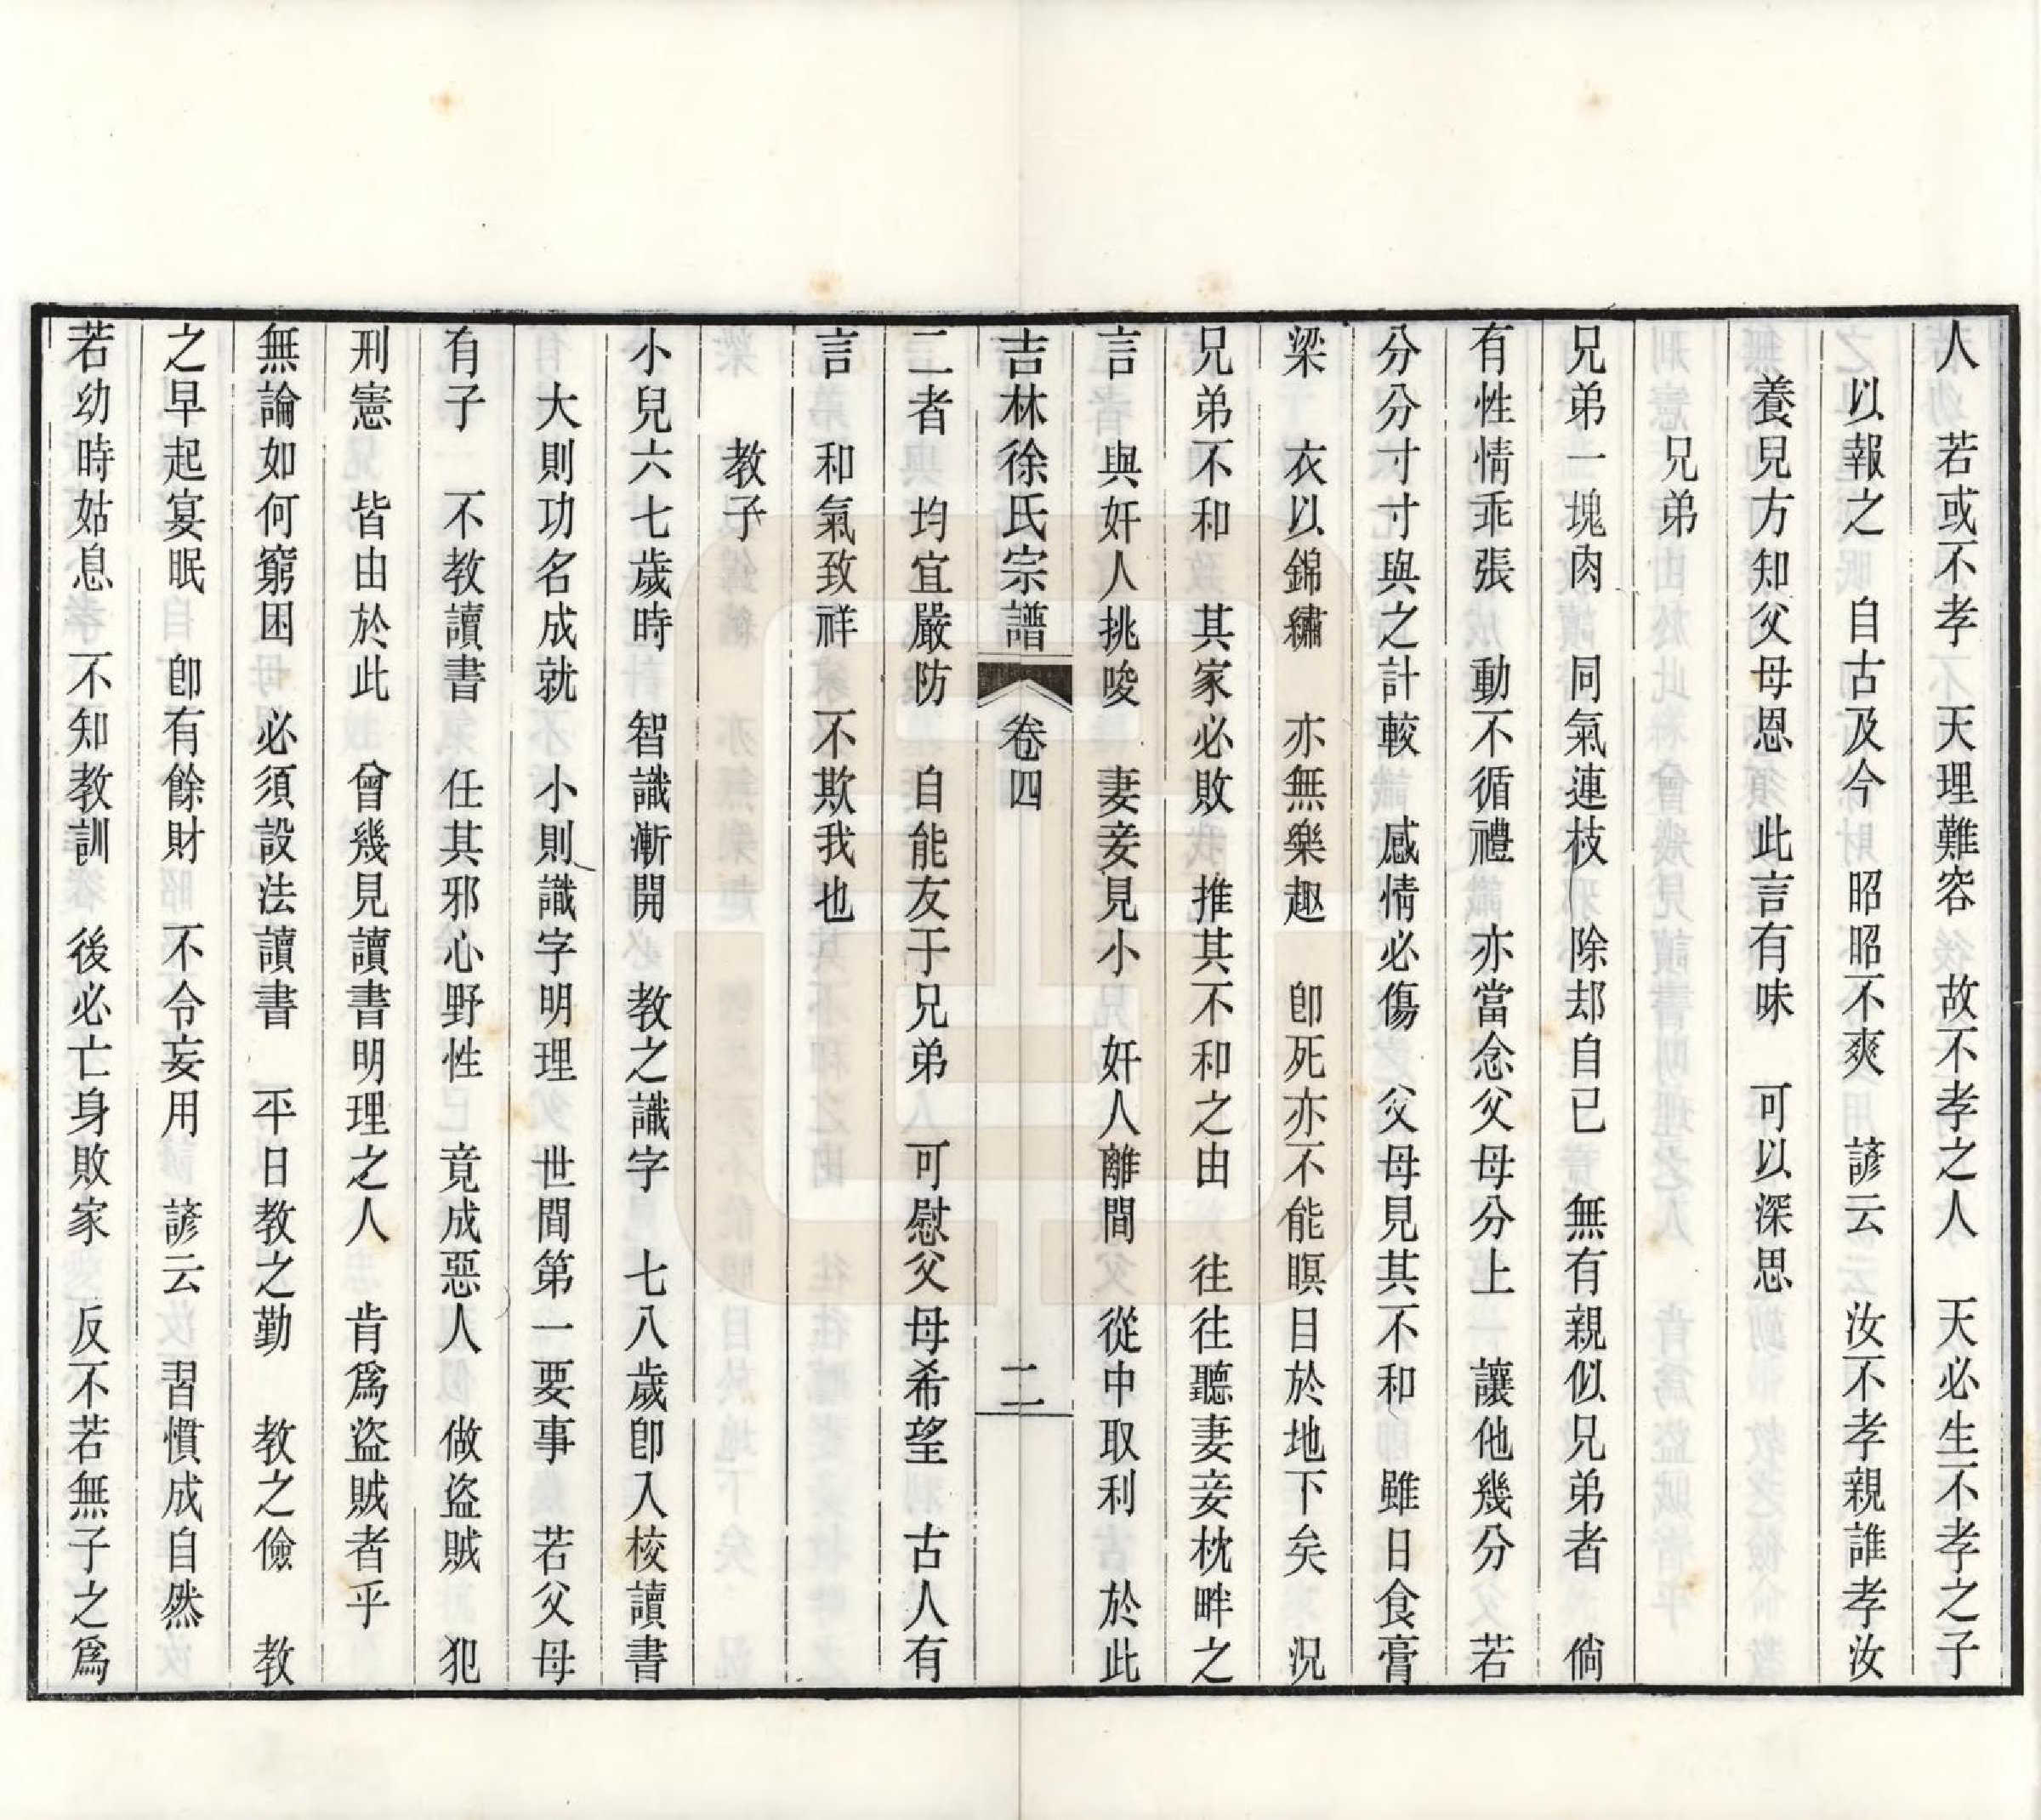 人　若或不孝　天理難容　故不孝之人　天必生不孝之子
以報之　自古及今　昭昭不爽　諺云　汝不孝親誰孝汝
養兒方知父母恩　此言有味　可以深思
兄弟
兄弟一塊肉　同氣連枝　除却自己　無有親似兄弟者　倘
有性情乖張　動不循禮　亦當念父母分上　讓他幾分　若
分分寸寸與之計較　感情必傷　父母見其不和　雖日食膏
梁　衣以錦繡　亦無樂趣　卽死亦不能瞑目於地下矣　況
兄弟不和　其家必敗　推其不和之由　往往聽妻妾枕畔之
言　與奸人挑唆　妻妾見小　奸人離間　從中取利　於此
吉林徐氏宗譜　卷四　二
二者　均宜嚴防　自能友于兄弟　可慰父母希望　古人有
言　和氣致祥　不欺我也
教子
小兒六七歲時　智識漸開　教之識字　七八歲卽入校讀書
大則功名成就　小則識字明理　世間第一要事　若父母
有子　不教讀書　任其邪心野性　竟成惡人　做盜賊　犯
刑憲　皆由於此　曾幾見讀書明理之人　肯爲盜賊者乎
無論如何窮困　必須設法讀書　平日教之勤　教之儉　教
之早起宴眠　卽有餘財　不令妄用　諺云　習慣成自然
若幼時姑息　不知教訓　後必亡身敗家　反不若無子之爲